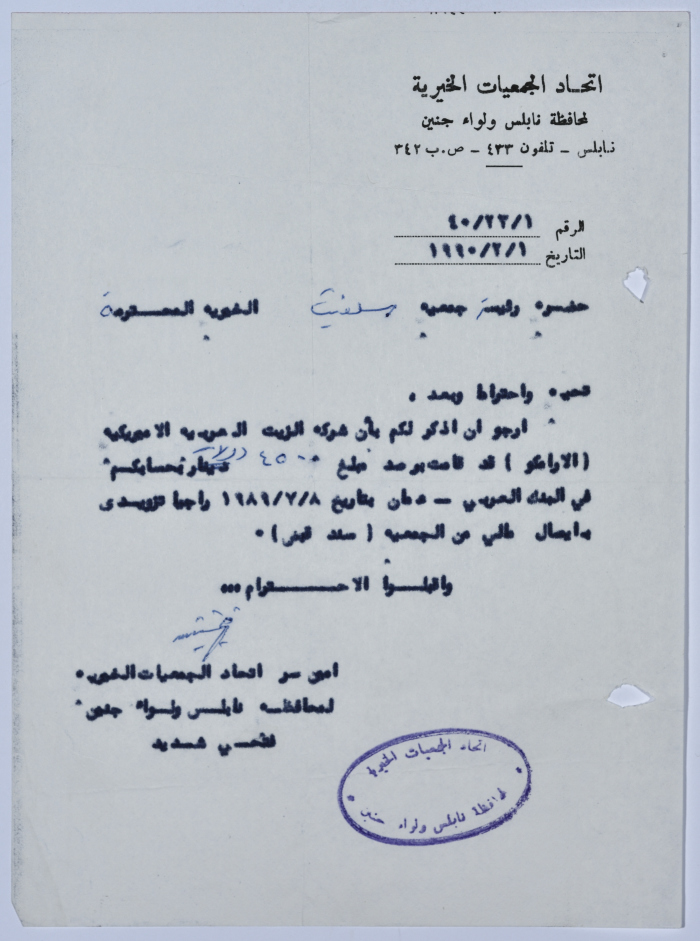 اتحـاد الجمعيات الخيرية
لمحافظة نابلس ولواء جنين
نابلس ـ تلفون ٤٣٣ ـ ص.ب ٣٤٢
الرقم ٤٠/٢٣/١
التاريخ ١٩٩٠/٢/١
حضرة رئيسة جمعية سلفيت الخيرية المحترمة
تحية واحتراما وبعد ،
ارجو ان اذكر لكم بأن شركة الزيت العربية الامريكية
( الارامكو ) قد قامت برصد مبلغ ٤٥٠٠ دولار لحسابكم
في البنك العربي ـ عمان بتاريخ ١٩٨٩/٧/٨ راجيا تزويدى
بايصال مالي من الجمعية ( سند قبض ) ٠
واقبلـوا الاحتـرام ٠٠٠
امين سر اتحاد الجمعيات الخيرية
لمحافظة نابلس ولواء جنين
فتحي شديد
اتحاد الجمعيات الخيرية
لمحافظة نابلس ولواء جنين